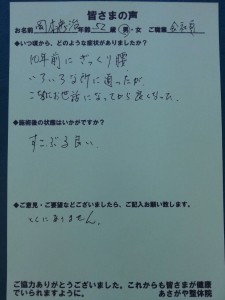 皆さまの声
お名前 年齢 52 歳 男・女 ご職業 会社員
◆いつ頃から、どのような症状がありましたか?
10年前にぎっくり腰
いろいろな所に通ったが、
こちらにお世話になってから良くなった。
◆施術後の状態はいかがですか?
すこぶる良い。
◆ご意見・ご要望などございましたら、ご記入お願い致します。
とくにありません。
ご協力ありがとうございました。これからも皆さまが健康
でいられますように。 あさがや整体院